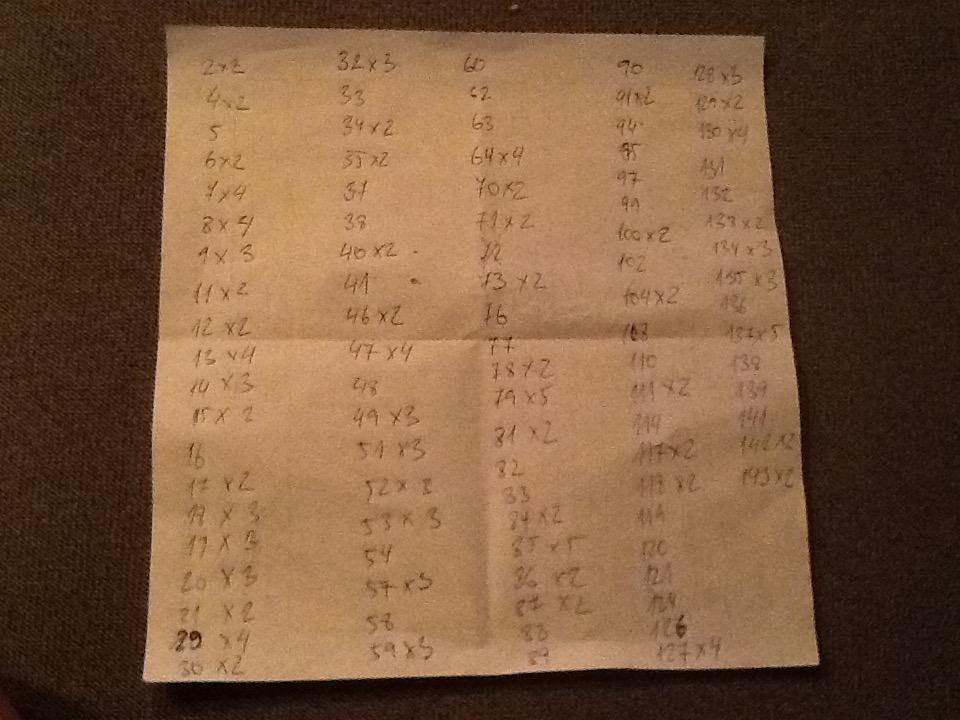 2x2
4x2
5
6x2
7x4
8x4
9x3
11x2
12x2
13x4
14x3
15x2
16
17x2
18x3
19x3
20x3
21x2
29x4
30x2
32x3
33
34x2
35x2
37
38
40x2
41
46x2
47x4
48
49x3
51x3
52x2
53x3
54
57x3
58
59x3
60
62
63
64x4
70x2
71x2
72
73x2
76
77
78x2
79x5
81x2
82
83
84x2
85x5
86x2
87x2
88
89
90
91x2
94
95
97
99
100x2
102
104x2
108
110
111x2
114
117x2
118x2
119
120
121
124
126
127x4
128x3
129x2
130x4
131
132
133x2
134x3
135x3
136
137x5
138
139
141
142x2
143x2